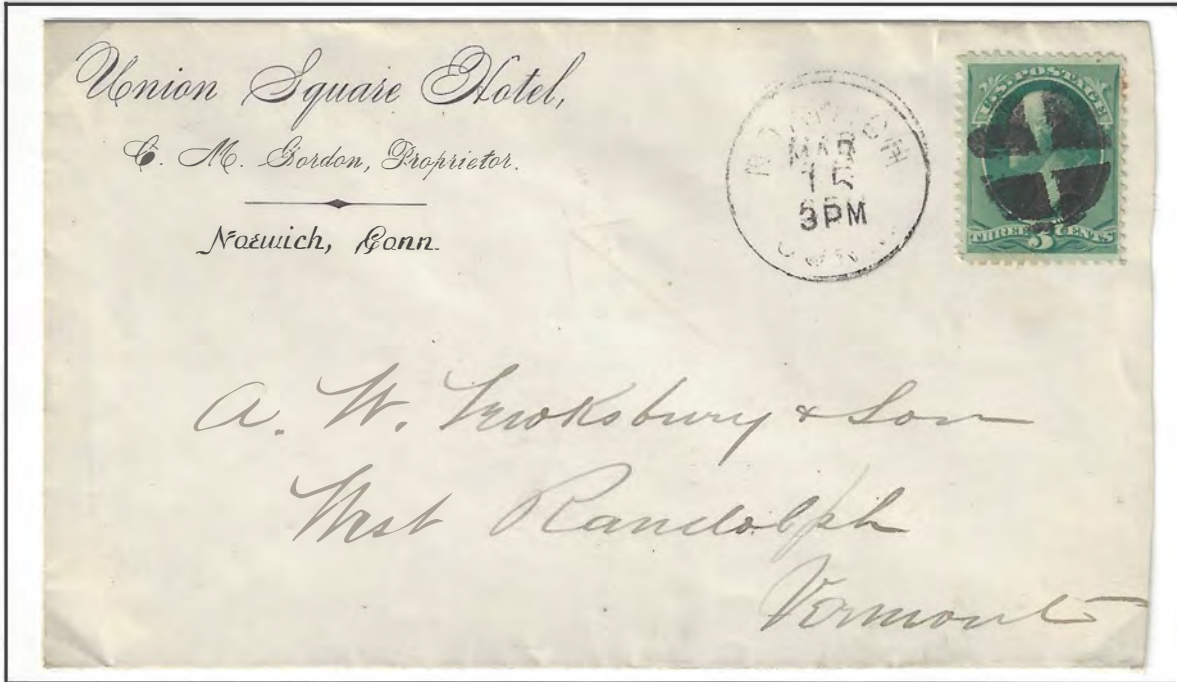 Union Square Hotel,
C. M. Gordon, Proprietor.
Norwich, Conn.
NORWICH
MAR
15
3PM
CONN.
U.S. POSTAGE
THREE 3 CENTS
A. W. Tewksbury & Son
West Randolph
Vermont